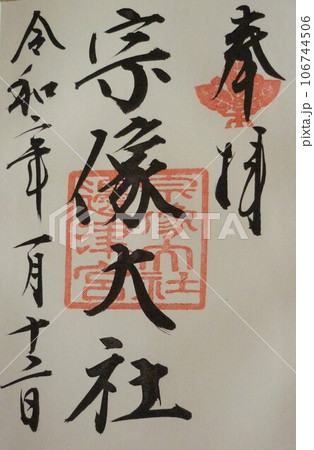 奉拝
宗像大社
宗像大社
邊津宮
令和二年一月十二日
PIXTA
pixta.jp - 106744506